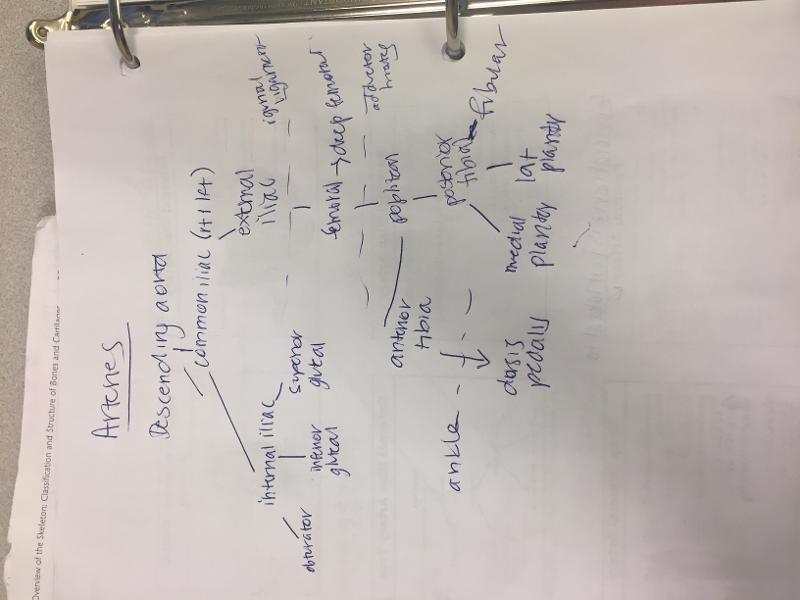 Arteries
Descending aorta
common iliac (rt lft)
internal iliac
external
iliac
obturator
inferior
gluteal
superior
gluteal
femoral → deep femoral
adductor
popliteal
anterior
tibia
posterior
tibial
fibular
ankle
medial
plantar
lat
plantar
dorsis
pedalis
Overview of the Skeleton: Classification and Structure of Bones and Cartilages